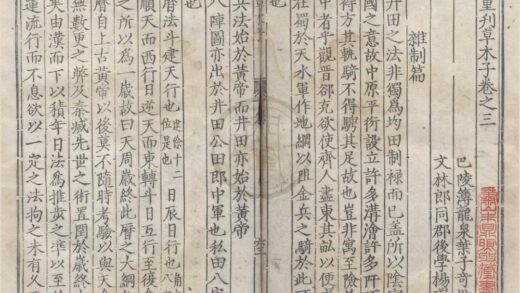 重刊草木子卷之三
巴陵簿龍泉葉子奇世
文林郎同郡後學楊
雜制篇
井田之法非獨為均田制祿而已蓋所以陰
國之意故中原平衍設立許多溝澮許多阡
得方其軌騎不得騁其足故也豈非寓至險
中者乎觀晉郤克欲使齊人盡東其畝以便
在蜀於天水軍作地網以阻金兵之騎於此
兵法始於黃帝而井田亦始於黃帝
八陣圖亦出於井田公田即中軍也私田八
曆法斗建天行也建餘十二位是也日辰日行也
順天而西行日逆天而東轉斗日互行至後
之所以為一歲故曰天周歲終此曆之大綱
曆自上古黃帝以後莫不隨時考驗以與天
無數更之弊及秦滅先世之術置閏於歲終
矣由漢而下以積年日法為推步之準以至
運流行而不息欲以一定之法拘之未有久